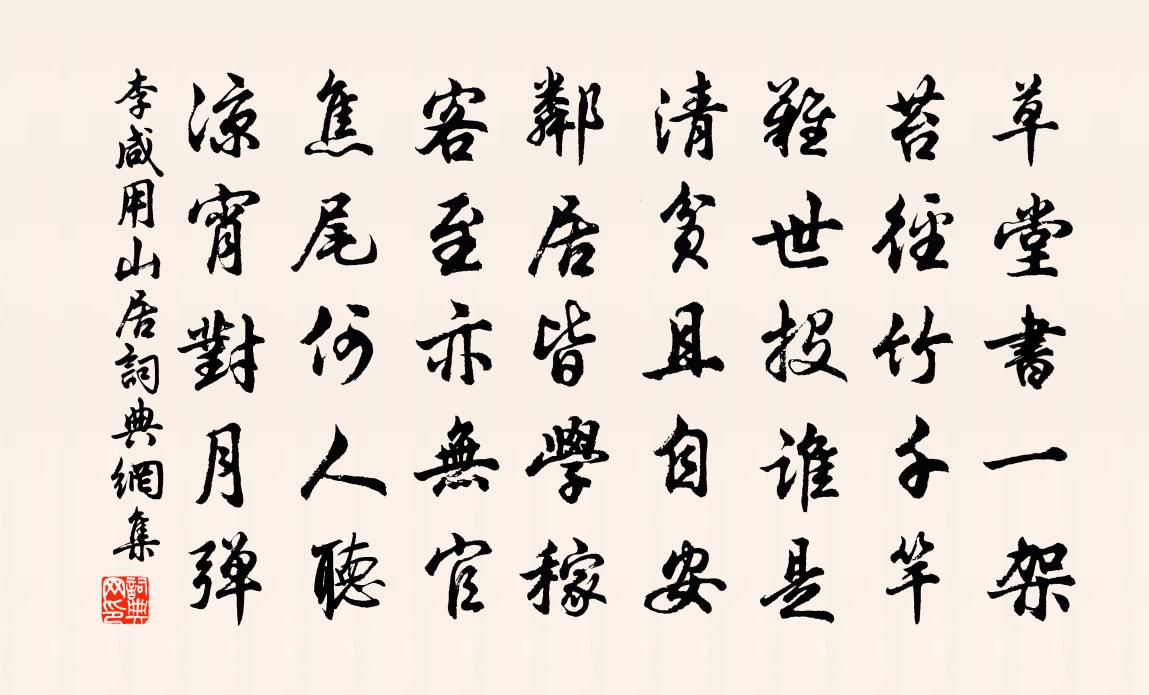 草堂書一架
苔徑竹千竿
難世投誰是
清貧且自安
鄰居皆學稼
客至亦無官
焦尾何人聽
涼宵對月彈
李咸用山居詞典網集
詞典
网印